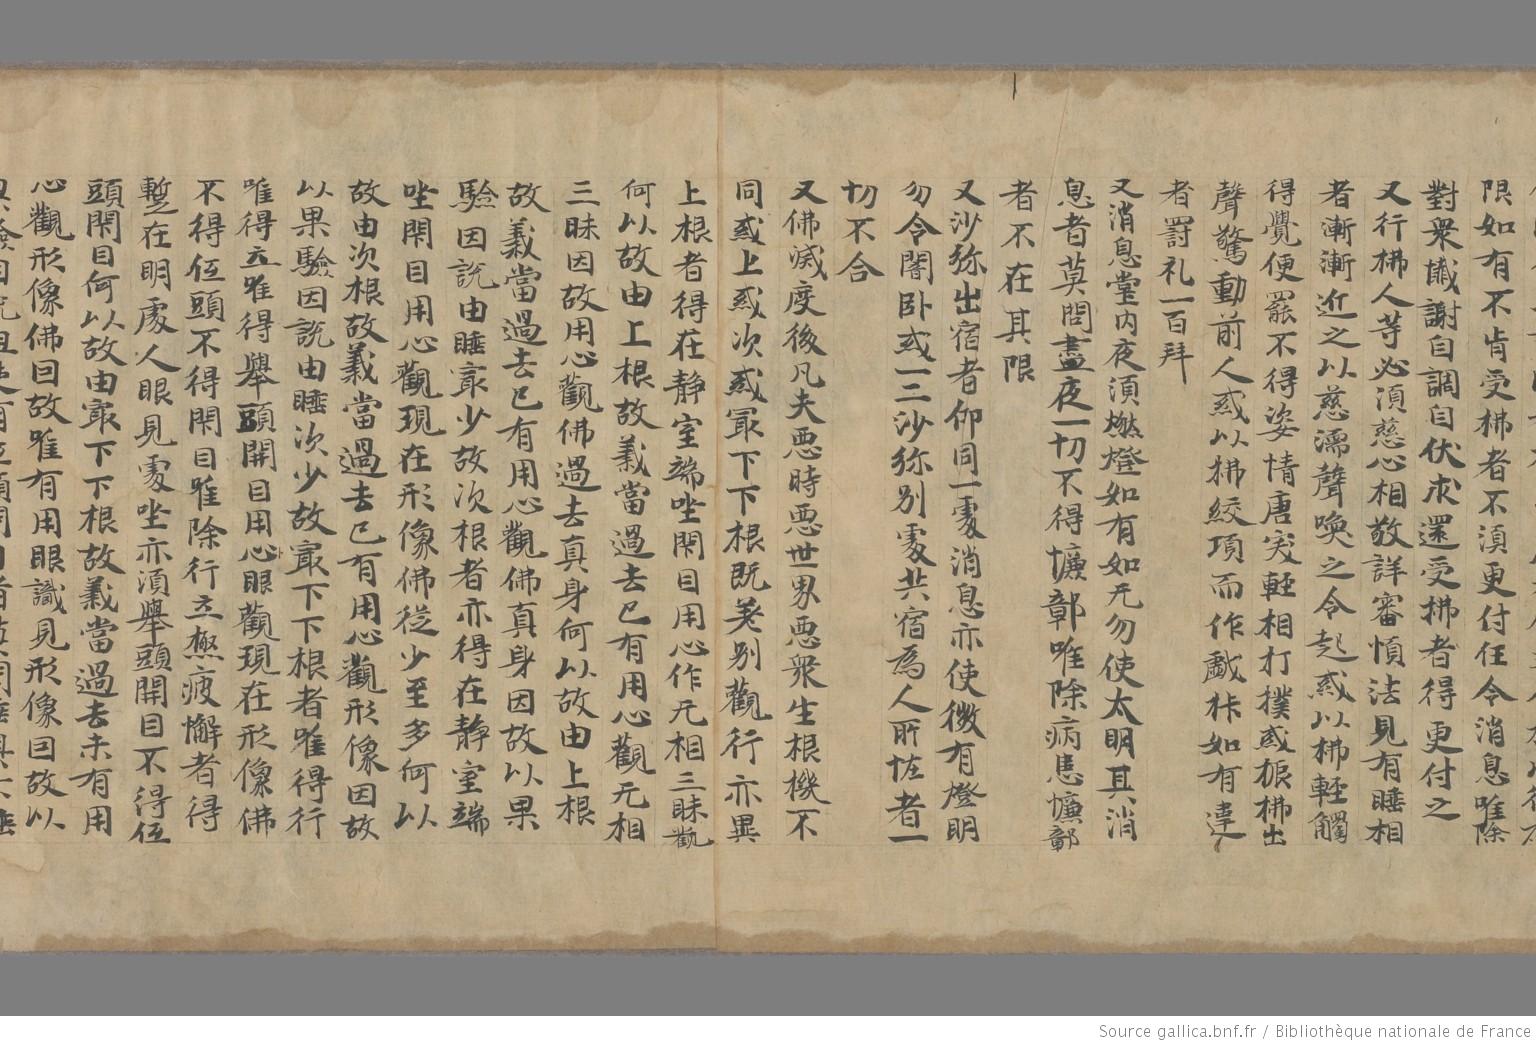 限如有不肯受拂者不須更付任令消息唯除
對衆懴謝自調自伏求還受拂者得更付之
又行拂人等必須慈心相敬詳審慎法見有睡相
者漸漸近之以慈濡聲喚之令起或以拂輕觸
得覺便罷不得姿情唐突輕相打撲或振拂出
聲驚動前人或以拂絞項而作戱㧣如有違
者罸礼一百拜
又消息堂内夜須燃燈如有如无勿使太明其消
息者莫問晝夜一切不得㦬鄣唯除病患㦬鄣
者不在其限
又沙弥出宿者仰同一處消息亦使微有燈明
勿令闇卧或一二沙弥別處共宿為人所恠者一
切不合
又佛滅度後凡夫惡時惡世界惡衆生根機不
同或上或次或冣下下根既差別觀行亦異
上根者得在静室端坐閇目用心作无相三昧觀
何以故由上根故義當過去已有用心觀无相
三昧因故用心觀佛過去真身何以故由上根
故義當過去已有用心觀佛真身因故以果
驗因說由睡冣少故次根者亦得在静室端
坐閇目用心觀現在形像佛從少至多何以
故由次根故義當過去已有用心觀形像因故
以果驗因說由睡次少故冣下下根者唯得行
唯得立唯得舉頭開目用心眼觀現在形像佛
不得伍頭不得閇目唯除行立㧡疲懈者得
蹔在明處人眼見處坐亦須舉頭開目不得伍
頭閇目何以故由冣下下根故義當過去未有用
心觀形像佛因故唯有用眼識見形像因故以